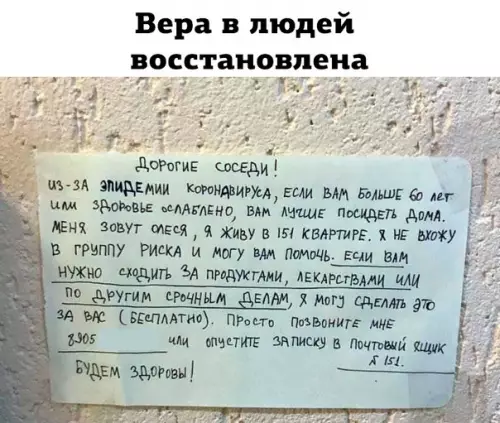 Вера в людей
восстановлена
ДОРОГИЕ СОСЕДИ!
ИЗ-ЗА ЭПИДЕМИИ КОРОНАВИРУСА, ЕСЛИ ВАМ БОЛЬШЕ 60 ЛЕТ
ИЛИ ЗДОРОВЬЕ ОСЛАБЛЕНО, ВАМ ЛУЧШЕ ПОСИДЕТЬ ДОМА.
МЕНЯ ЗОВУТ ОЛЕСЯ, Я ЖИВУ В 151 КВАРТИРЕ. Я НЕ ВХОЖУ
В ГРУППУ РИСКА И МОГУ ВАМ ПОМОЧЬ. ЕСЛИ ВАМ
НУЖНО СХОДИТЬ ЗА ПРОДУКТАМИ, ЛЕКАРСТВАМИ ИЛИ
ПО ДРУГИМ СРОЧНЫМ ДЕЛАМ, Я МОГУ СДЕЛАТЬ ЭТО
ЗА ВАС (БЕСПЛАТНО). ПРОСТО ПОЗВОНИТЕ МНЕ
8905 ИЛИ ОПУСТИТЕ ЗАПИСКУ В ПОЧТОВЫЙ ЯЩИК
№ 151.
БУДЕМ ЗДОРОВЫ!